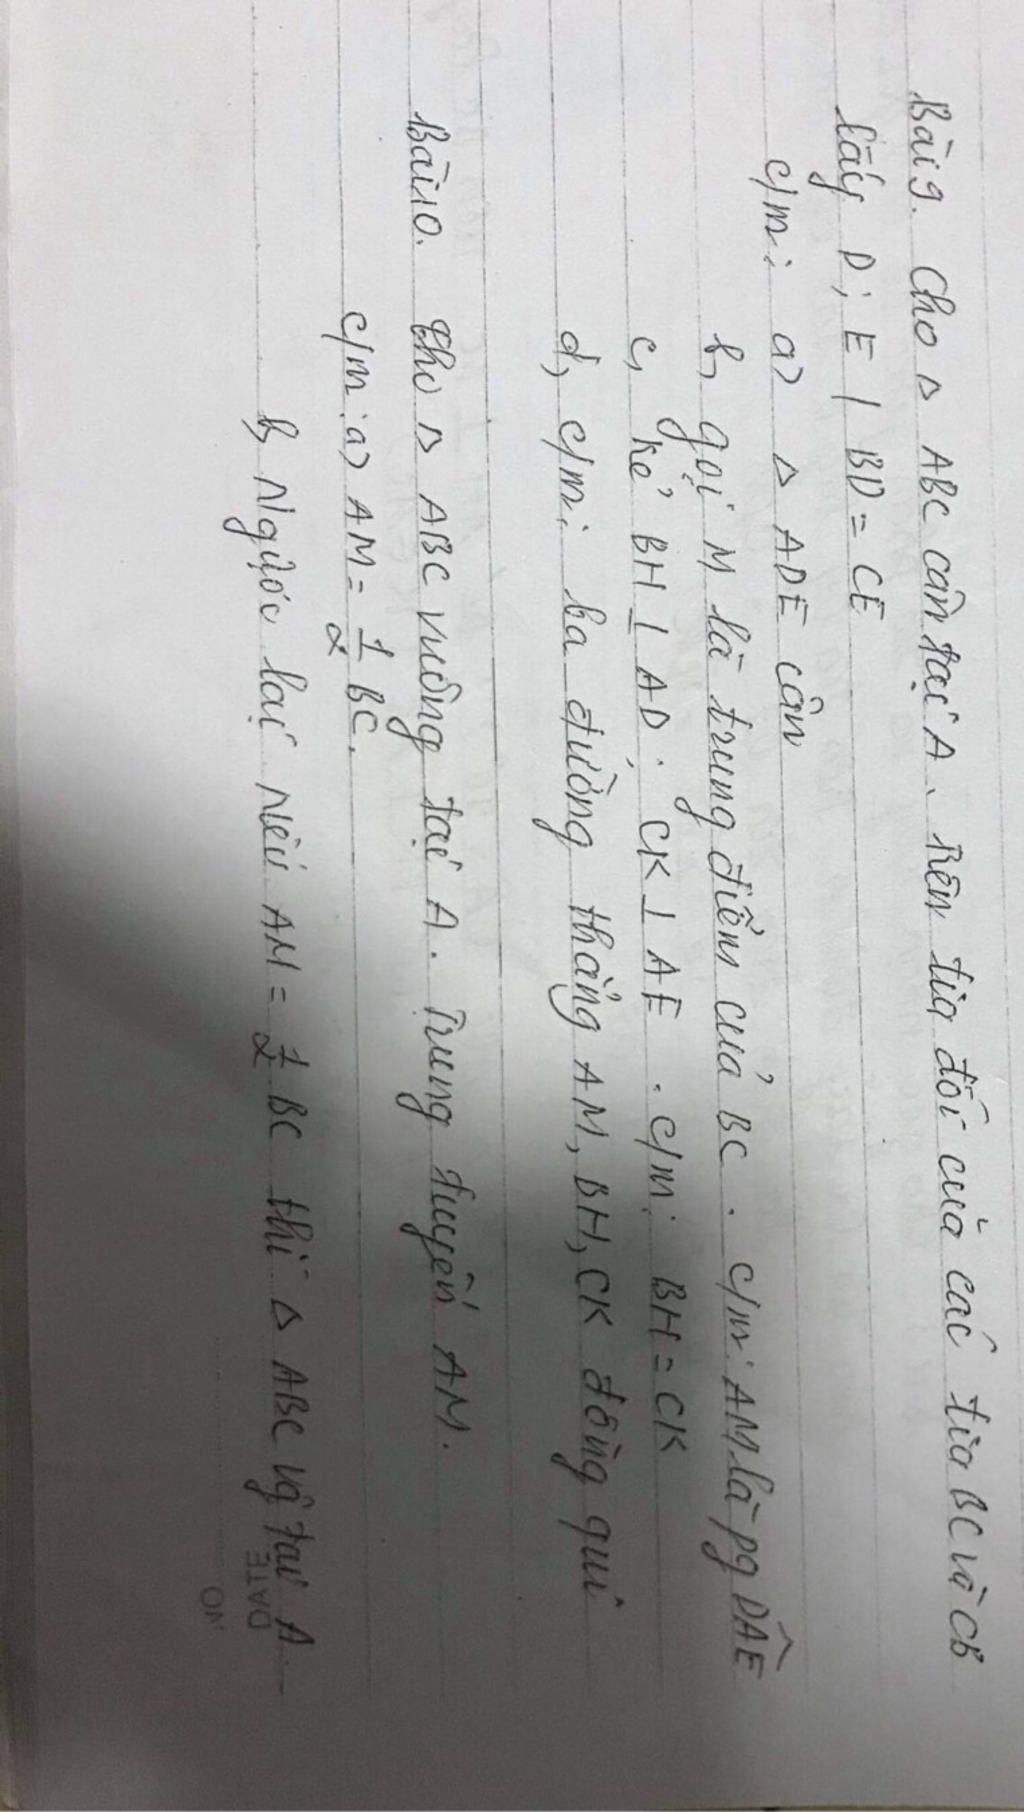 Bài 9. Cho △ ABC cân tại A. Trên tia đối của các tia BC và CB
lấy D; E / BD = CE
c/m: a) △ ADE cân
b, gọi M là trung điểm của BC. c/m: AM là pg DÂE
c, kẻ BH ⊥ AD; CK ⊥ AE. c/m: BH = CK
d, c/m: ba đường thẳng AM, BH, CK đồng qui
Bài 10. Cho △ ABC vuông tại A. Trung tuyến AM.
c/m: a) AM = 1/2 BC.
b, Ngược lại nếu AM = 1/2 BC thì △ ABC vg tại A.
DATE
NO